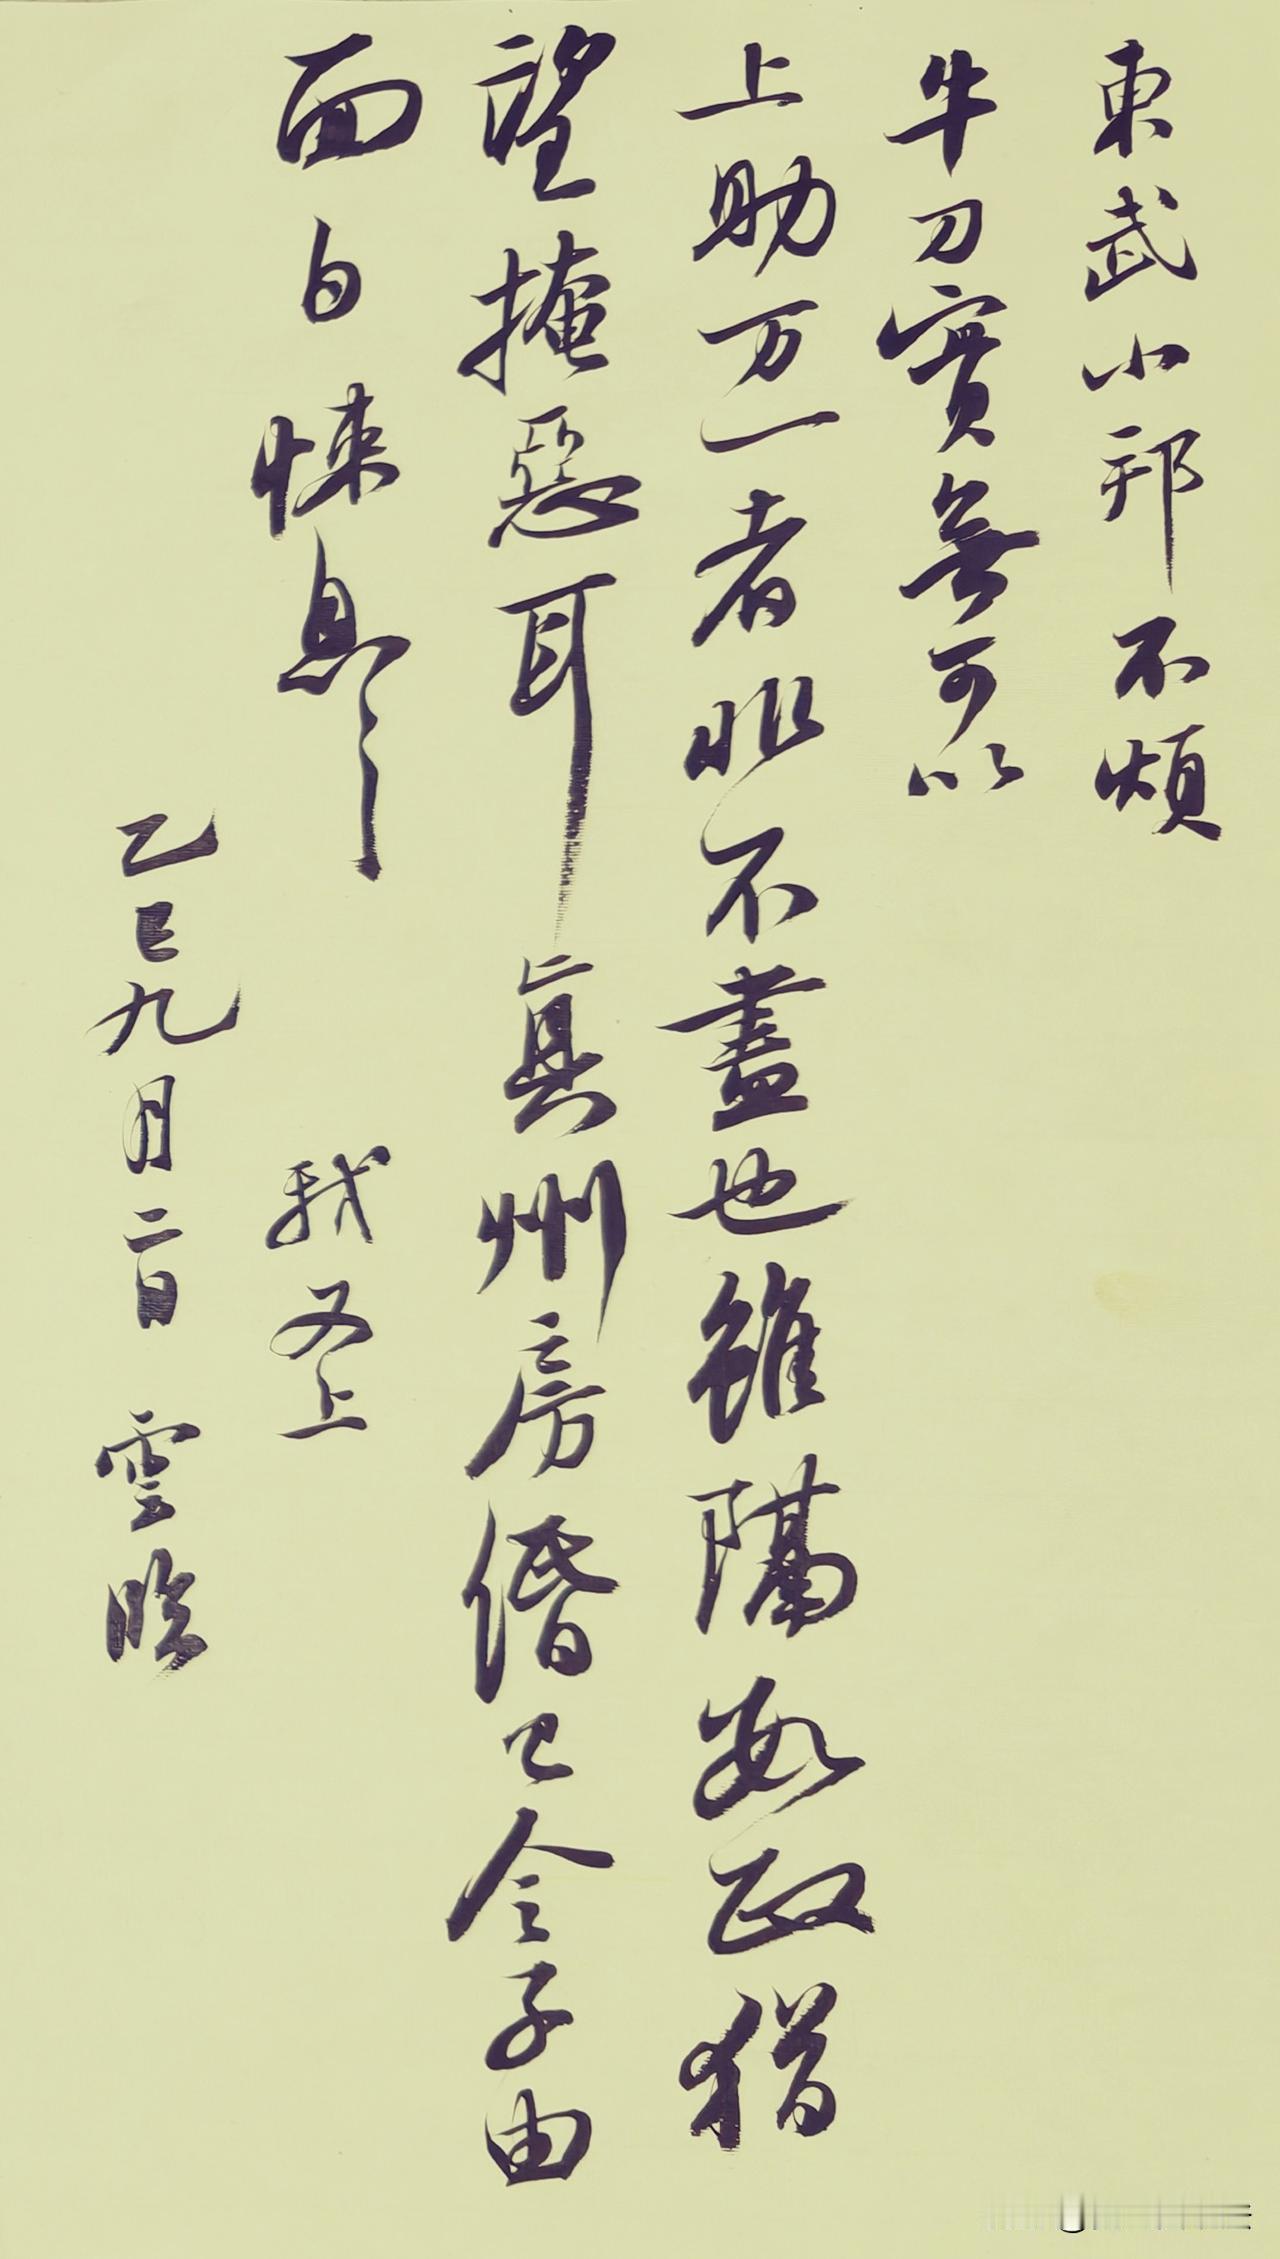 東武小邦不煩
牛刀實無可以
上助万一者非不盡也雖隔數政猶
望掩惡耳真州房緡已令子由
面白悚息々々 軾又上
乙巳九月二日 雲